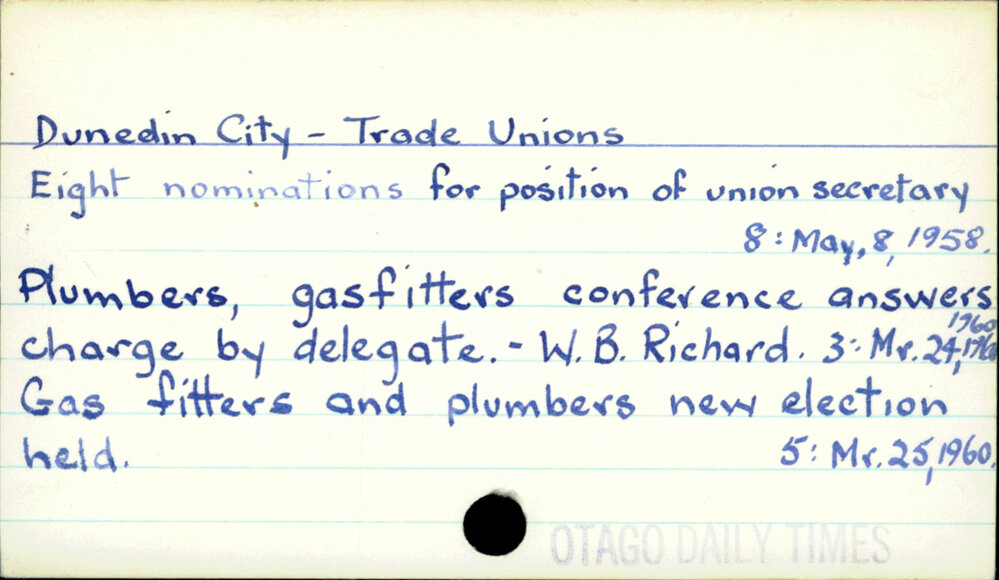 Dunedin City - Trade Unions
Eight nominations for position of union secretary
8: May, 8, 1958.
Plumbers, gasfitters conference answers
1960
charge by delegate. - W. B. Richard. 3: Mr. 24, 1960
Gas fitters and plumbers new election
held. 5: Mr. 25, 1960.
OTAGO DAILY TIMES